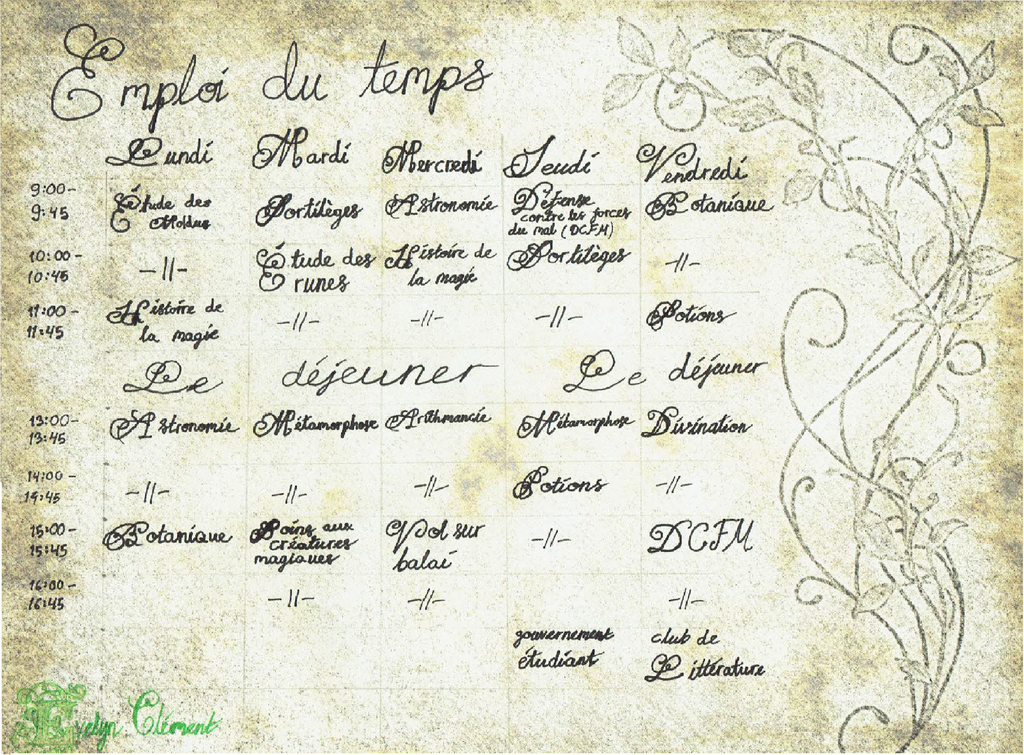 Emploi du temps
Lundi Mardi Mercredi Jeudi Vendredi
9:00-
9:45
Étude des
Moldus
Sortilèges
Astronomie
Défense
contre les forces
du mal (DCFM)
Botanique
10:00-
10:45
-//-
Étude des
runes
Histoire de
la magie
Sortilèges
-//-
11:00-
11:45
Histoire de
la magie
-//-
-//-
-//-
Potions
Le déjeuner Le déjeuner
13:00-
13:45
Astronomie
Métamorphose
Arithmancie
Métamorphose
Divination
14:00-
14:45
-//-
-//-
-//-
Potions
-//-
15:00-
15:45
Botanique
Soins aux
créatures
magiques
Vol sur
balai
-//-
DCFM
16:00-
16:45
-//-
-//-
-//-
gouvernement
étudiant
club de
Littérature
Evelyn Clément